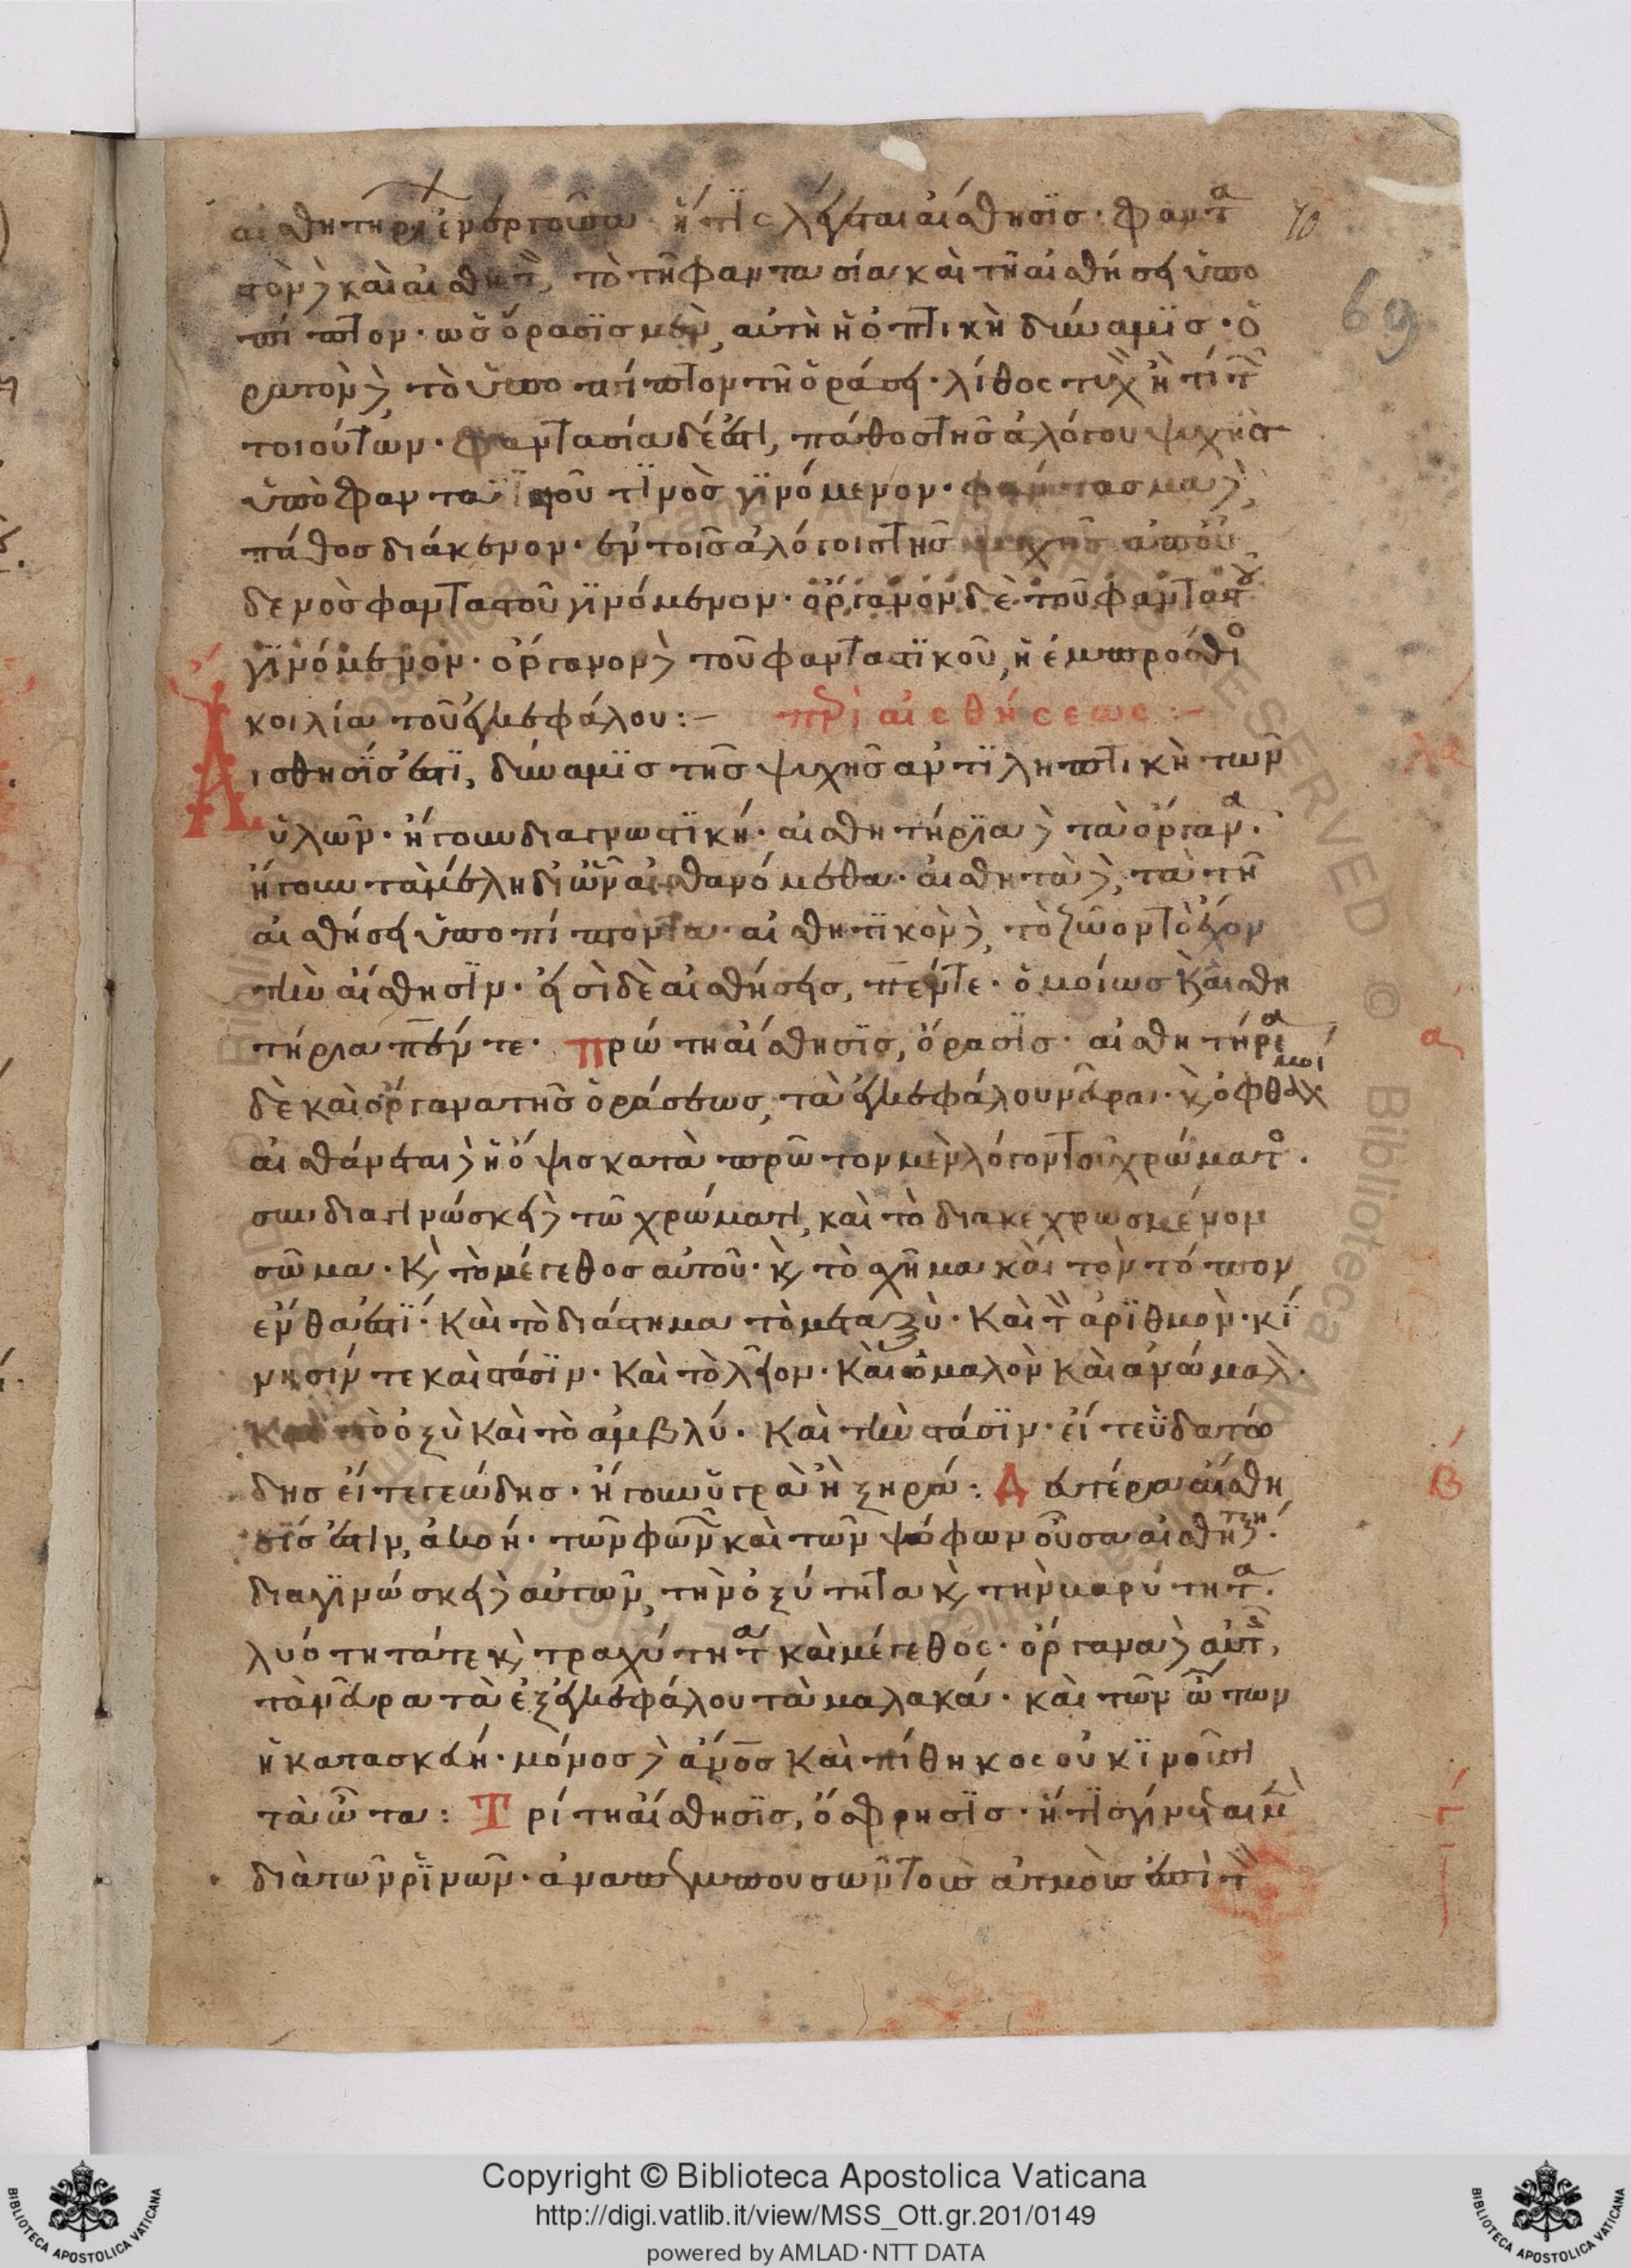 αἰσθητηρί ἐνεργοῦσα ἥτις λέγεται αἴσθησϊς· φαντα 70
στὸν δὲ καὶ αἰσθητὸν, τὸ τῆ φαντασία καὶ τῆ αἰσθήσει ὑπο 69
πίπτον· ὡς ὅρασϊς μὲν, αὐτὴ ἡ ὀπτικὴ δύναμϊς· ὁ
ρατὸν δὲ, τὸ ὑποπίπτον τῆ ὁράσει· λίθος τυχὸν ἤ τι τῶν
τοιούτων· φαντασία δέ ἐστι, πάθος τῆς ἀλόγου ψυχῆς
ὑπὸ φανταστοῦ τϊνὸς γϊνόμενον· φάντασμα δὲ,
πάθος διάκενον· ἐν τοῖς ἀλόγοις τῆς ψυχῆς ἀπ οὐ
δενὸς φανταστοῦ γϊνόμενον· ὄργανον δὲ τοῦ φανταστοῦ
γϊνόμενον· ὄργανον δὲ τοῦ φανταστϊκοῦ, ἡ ἐμπρόσθιος
κοιλία τοῦ ἐγκεφάλου:– περὶ αἰσθήσεως:–
Αἴσθησϊς ἐστϊ, δύναμϊς τῆς ψυχῆς ἀντϊληπτικὴ τῶν
ὑλῶν· ἤγουν διαγνωστϊκή· αἰσθητήρϊα δὲ τὰ ὄργανα·
ἤγουν τὰ μέλη δι ὧν αἰσθανόμεθα· αἰσθητὰ δὲ, τὰ τῆ
αἰσθήσει ὑποπίπτοντα· αἰσθητϊκὸν δὲ, τὸ ζῶον τὸ ἔχον
τὴν αἴσθησιν· εἰσὶ δὲ αἰσθήσεις, πέντε· ὁμοίως καὶ αἰσθη
τήρια πέντε· Πρώτη αἴσθησϊς, ὅρασϊς· αἰσθητήρια α
δὲ καὶ ὄργανα τῆς ὁράσεως, τὰ ἐγκεφάλου νεῦρα· καὶ ὀφθαλμοί
αἰσθάνεται δὲ ἡ ὄψις κατὰ πρῶτον μὲν λόγον τοῦ χρώματος·
συνδιαγινώσκει δὲ τῶ χρώματι, καὶ τὸ διακεχρωσμένον
σῶμα· καὶ τὸ μέγεθος αὐτοῦ· καὶ τὸ σχῆμα καὶ τὸν τόπον
ἔνθα ἐστϊ· Καὶ τὸ διάστημα τὸ μεταξὺ· Καὶ τὸν ἀρϊθμὸν· κί
νησίν τε καὶ στάσϊν· Καὶ τὸ λεῖον· Καὶ ὁμαλὸν καὶ ἀνώμαλον·
Καὶ τὸ ὀξὺ καὶ τὸ ἀμβλύ· Καὶ τὴν στάσϊν· εἴτε ὑδατώ
δης εἴτε γεώδης· ἤγουν ὑγρὰ ἢ ξηρά: Δευτέρα αἴσθη β
σϊς ἐστὶν, ἀκοή· τῶν φωνῶν καὶ τῶν ψόφων οὖσα αἰσθητική·
διαγϊνώσκει δὲ αὐτῶν, τὴν ὀξύτητα καὶ τὴν βαρύτητα·
λυότητά τε καὶ τραχύτητα καὶ μέγεθος· ὄργανα δὲ αὐτῆς,
τὰ νεῦρα τὰ ἐξ ἐγκεφάλου τὰ μαλακά· καὶ τῶν ὤτων
ἡ κατασκευή· μόνος δὲ ἄνος καὶ πίθηκος οὐ κϊνοῦσι
τὰ ὦτα: Τρίτη αἴσθησϊς, ὄσφρησϊς· ἥτις γίνεται μὲν γ
διὰ τῶν ρϊνῶν· ἀναπεμπουσῶν τοὺς ἀτμοὺς ἐπὶ τὸν